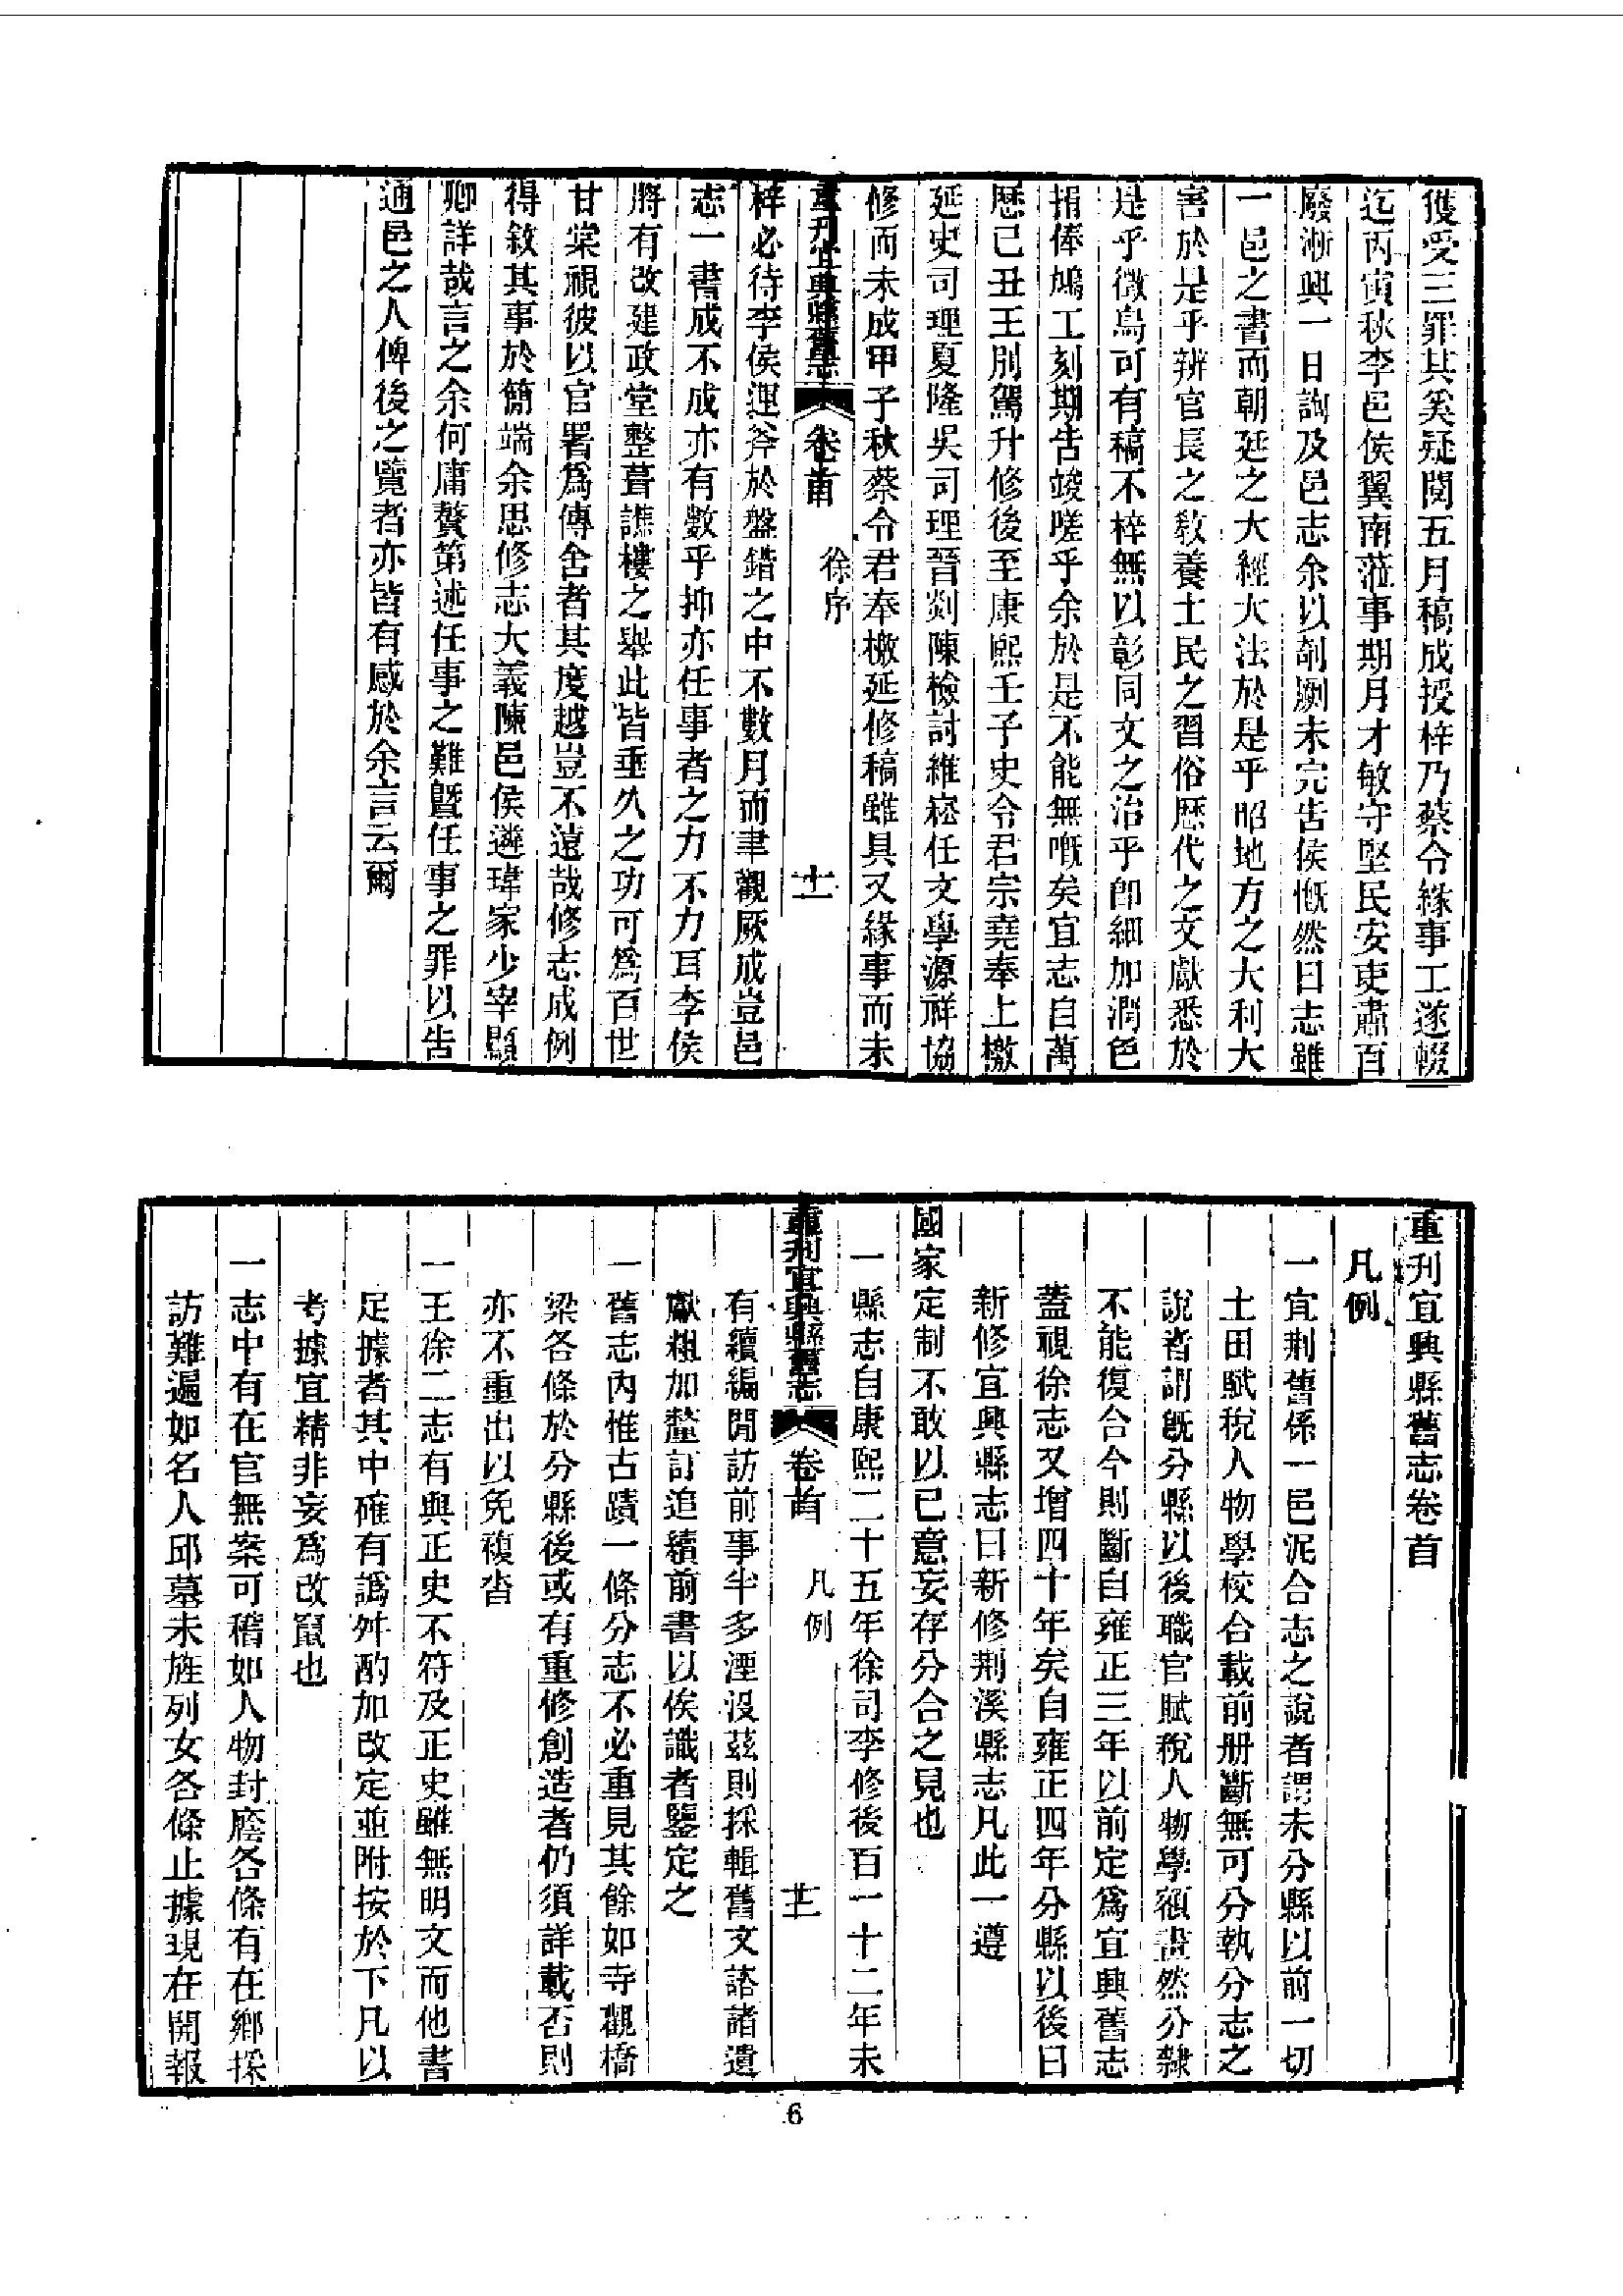 獲受三罪其奚疑閱五月稿成授梓乃蔡令緣事工遂輟
迄丙寅秋李邑侯翼南蒞事期月才敏守堅民安吏肅百
廢漸興一日詢及邑志余以剞劂未完告侯慨然曰志雖
一邑之書而朝廷之大經大法於是乎昭地方之大利大
害於是乎辨官長之敎養士民之習俗歷代之文獻悉於
是乎徵烏可有稿不梓無以彰同文之治乎卽細加潤色
捐俸鳩工刻期告竣嗟乎余於是不能無嘅矣宜志自萬
歷己丑王別駕升修後至康熙壬子史令君宗堯奉上檄
延史司理夏隆吳司理晉剡陳檢討維崧任文學源祥協
修而未成甲子秋蔡令君奉檄延修稿雖具又緣事而未
重刋宜興縣舊志 卷首 徐序 十一
梓必待李侯運斧於盤錯之中不數月而聿觀厥成豈邑
志一書成不成亦有數乎抑亦任事者之力不力耳李侯
將有改建政堂整葺譙樓之舉此皆垂久之功可爲百世
甘棠視彼以官署爲傳舍者其度越豈不遠哉修志成例
得敘其事於簡端余思修志大義陳邑侯遴瑋家少宰顯
卿詳哉言之余何庸贅第述任事之難曁任事之罪以告
通邑之人俾後之覽者亦皆有感於余言云爾
重刋宜興縣舊志卷首
凡例
一宜荆舊係一邑泥合志之說者謂未分縣以前一切
土田賦稅人物學校合載前册斷無可分執分志之
說者謂旣分縣以後職官賦稅人物學額畫然分隸
不能復合今則斷自雍正三年以前定爲宜興舊志
蓋視徐志又增四十年矣自雍正四年分縣以後曰
新修宜興縣志曰新修荆溪縣志凡此一遵
國家定制不敢以己意妄存分合之見也
一縣志自康熙二十五年徐司李修後百一十二年未
重刋宜興縣舊志 卷首 凡例 十二
有續編閒訪前事半多湮沒茲則採輯舊文諮諸遺
獻粗加釐訂追續前書以俟識者鑒定之
一舊志內惟古蹟一條分志不必重見其餘如寺觀橋
梁各條於分縣後或有重修創造者仍須詳載否則
亦不重出以免複沓
一王徐二志有與正史不符及正史雖無明文而他書
足據者其中確有譌舛酌加改定並附按於下凡以
考據宜精非妄爲改竄也
一志中有在官無案可稽如人物封廕各條有在鄉採
訪難遍如名人邱墓未旌列女各條止據現在開報
6